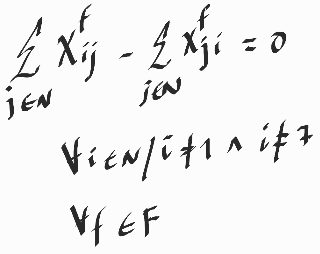 ∑_{j∈N} X_{ij}^f - ∑_{j∈N} X_{ji}^f = 0
∀i∈N/i≠1 ∧ i≠7
∀f∈F